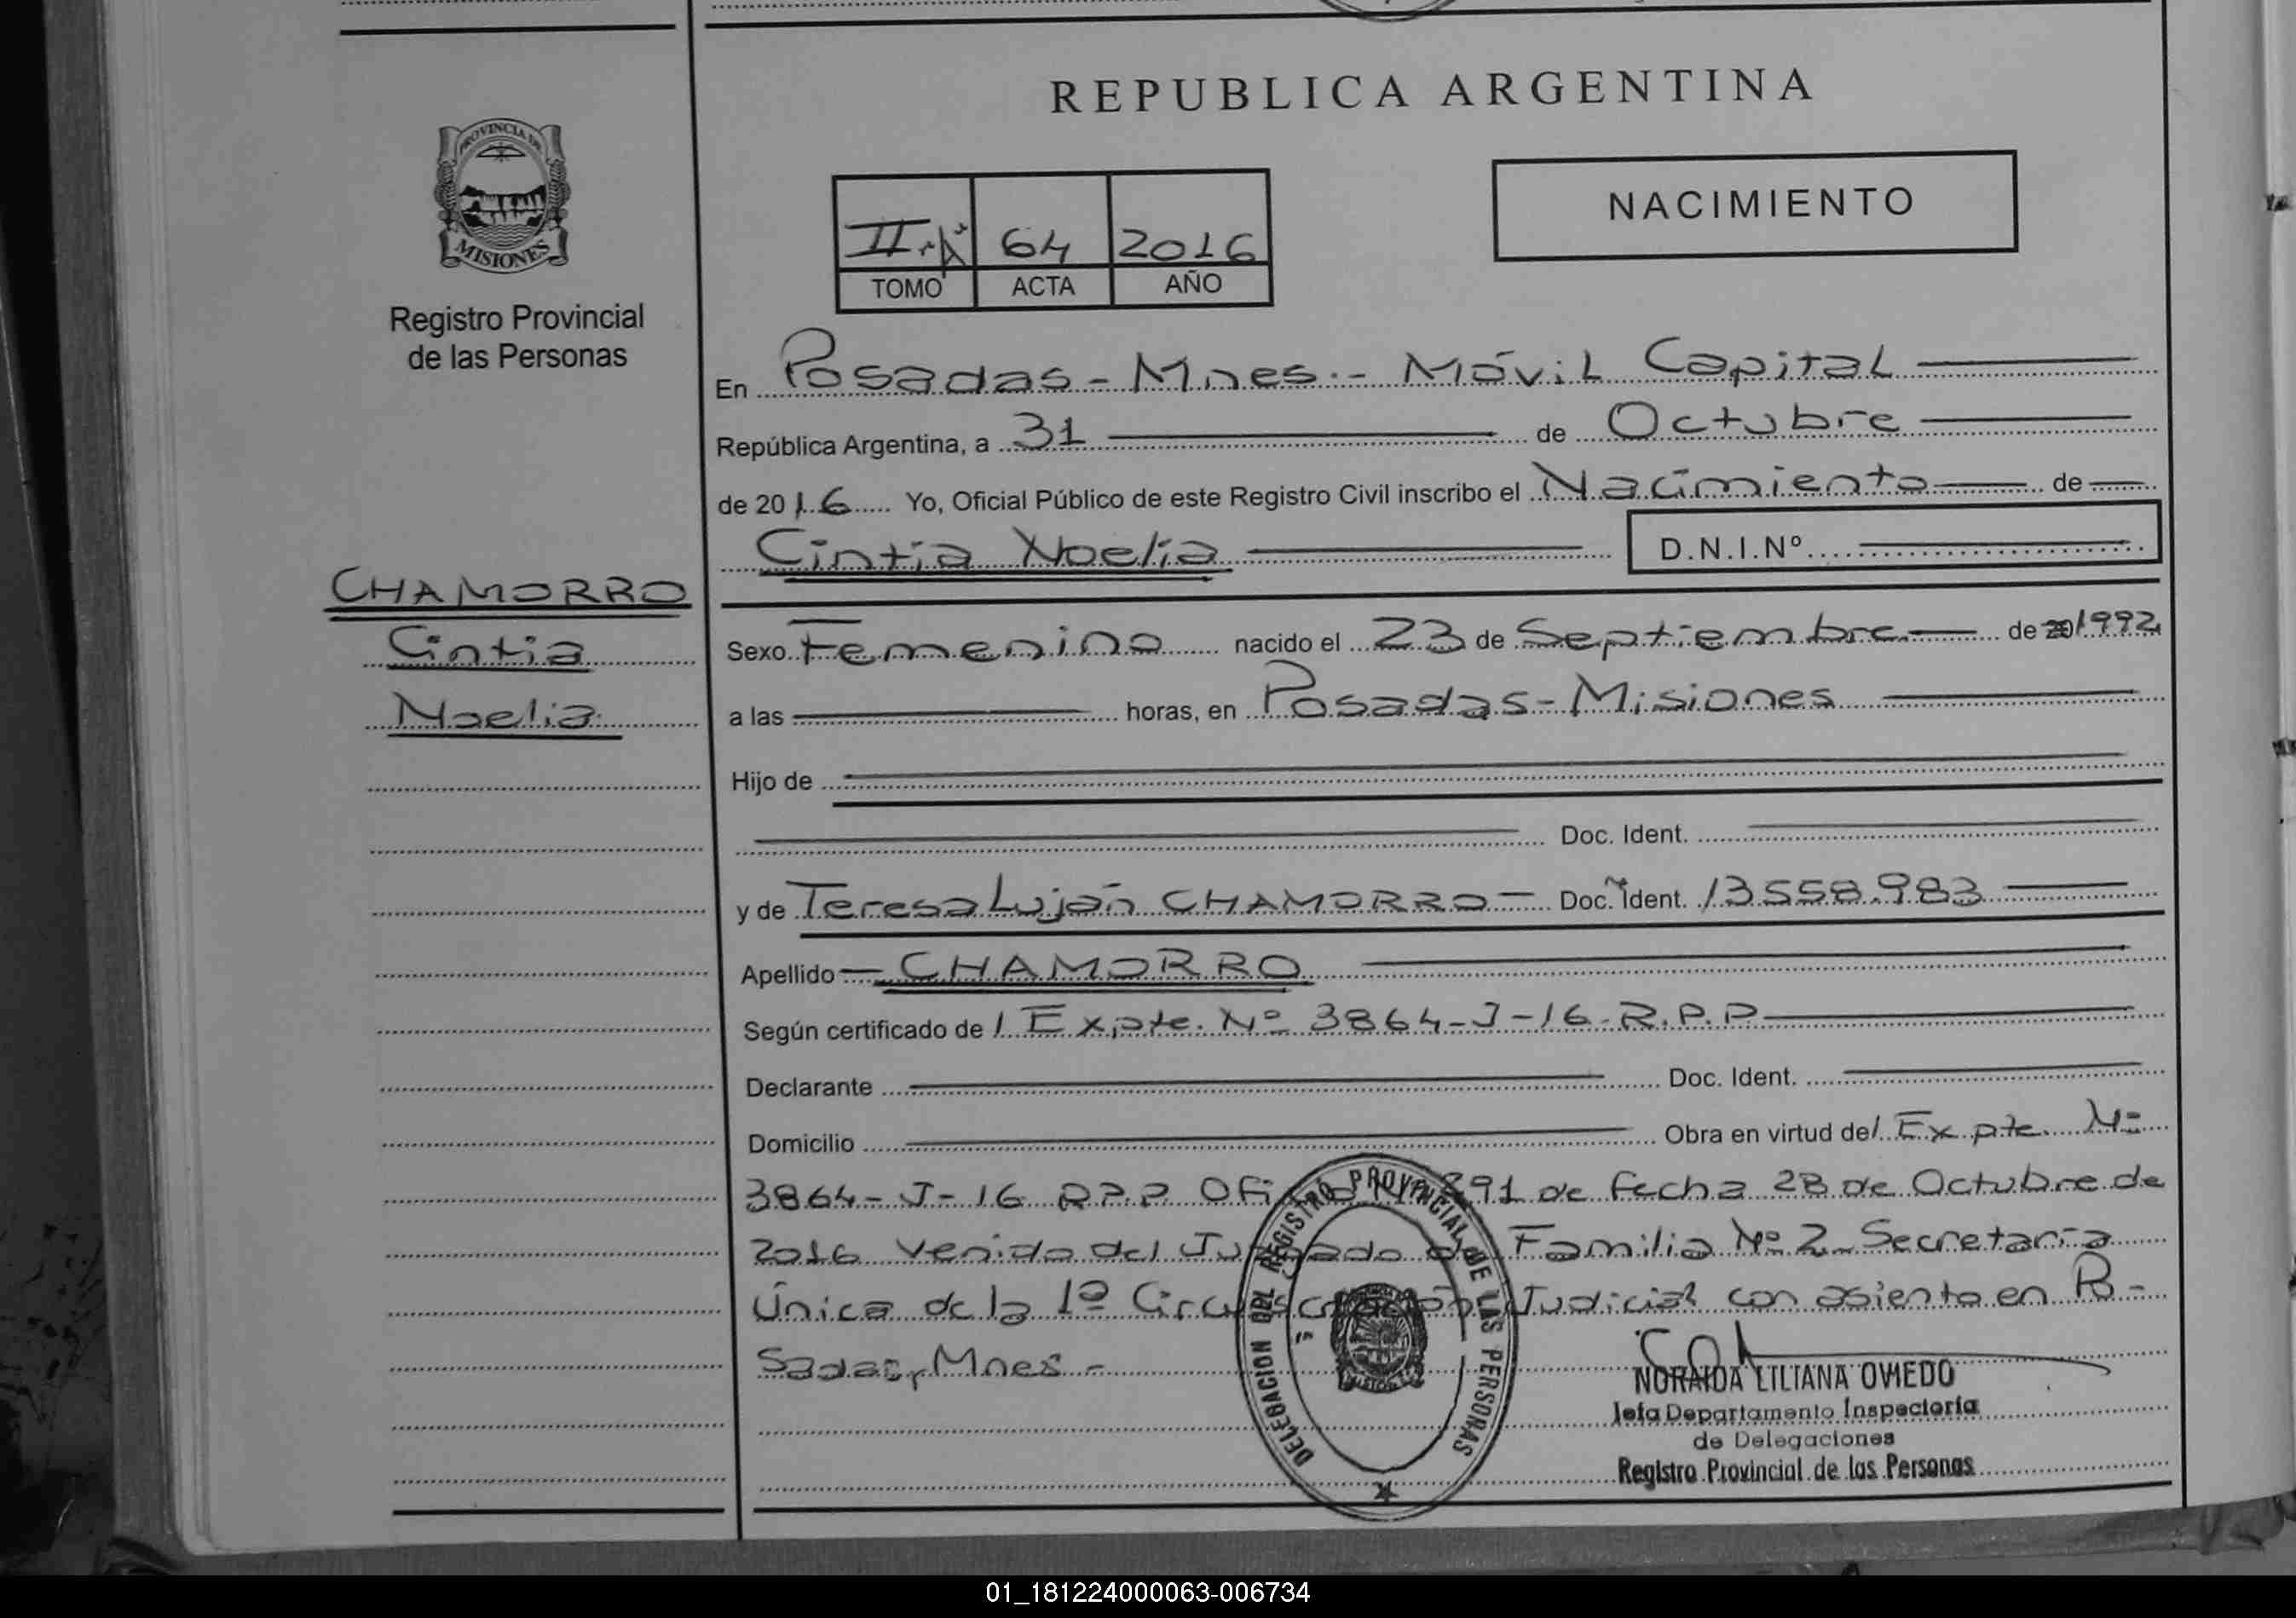 REPUBLICA ARGENTINA
PROVINCIA DE
MISIONES
Registro Provincial
de las Personas
II 64 2016
TOMO ACTA AÑO
NACIMIENTO
En Posadas - Mnes.- Móvil Capital
República Argentina, a 31 de Octubre
de 2016 Yo, Oficial Público de este Registro Civil inscribo el Nacimiento de
Cintia Noelia D.N.I.Nº
CHAMORRO
Cintia
Noelia
Sexo Femenino nacido el 23 de Septiembre de 1992
a las horas, en Posadas - Misiones
Hijo de
Doc. Ident.
y de Teresa Luján CHAMORRO - Doc. Ident. 13558.983
Apellido CHAMORRO
Según certificado de l Expte. Nº 3864-J-16-R.P.P
Declarante Doc. Ident.
Domicilio Obra en virtud del Expte. Nº
3864-J-16 R.P.P 91 de fecha 28 de Octubre de
2016 venido del Juzgado de Familia Nº 2 Secretaría
Única de la 1º Circunscripción Judicial con asiento en Po-
sadas, Mnes -
DELEGACION DEL REGISTRO PROVINCIAL DE LAS PERSONAS
NORAIDA LILIANA OVIEDO
Jefa Departamento Inspectoría
de Delegaciones
Registro Provincial de las Personas
01_181224000063-006734